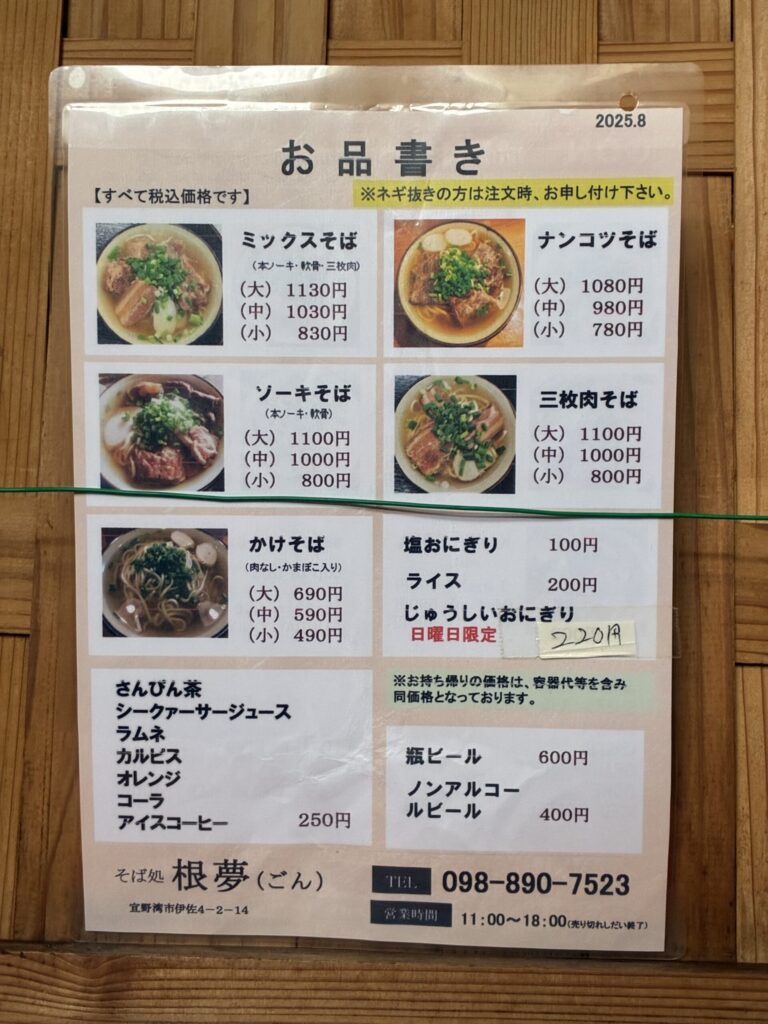 2025.8
お品書き
【すべて税込価格です】
※ネギ抜きの方は注文時、お申し付け下さい。
ミックスそば
（本ソーキ・軟骨・三枚肉）
（大） 1130円
（中） 1030円
（小） 830円
ナンコツそば
（大） 1080円
（中） 980円
（小） 780円
ソーキそば
（本ソーキ・軟骨）
（大） 1100円
（中） 1000円
（小） 800円
三枚肉そば
（大） 1100円
（中） 1000円
（小） 800円
かけそば
（肉なし・かまぼこ入り）
（大） 690円
（中） 590円
（小） 490円
塩おにぎり 100円
ライス 200円
じゅうしいおにぎり
日曜日限定 220円
さんぴん茶
シークァーサージュース
ラムネ
カルピス
オレンジ
コーラ
アイスコーヒー 250円
※お持ち帰りの価格は、容器代等を含み
同価格となっております。
瓶ビール 600円
ノンアルコー
ルビール 400円
そば処 根夢（ごん）
宜野湾市伊佐4－2－14
TEL 098-890-7523
営業時間 11:00～18:00（売り切れしだい終了）